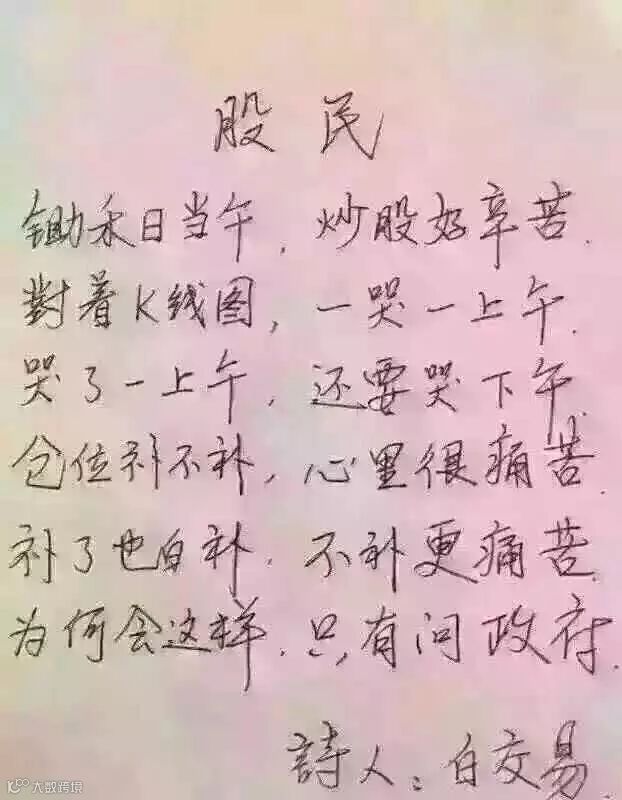 股民
锄禾日当午，炒股好辛苦.
對着K线图，一哭一上午.
哭了一上午，还要哭下午.
仓位补不补，心里很痛苦.
补了也白补.不补更痛苦.
为何会这样.只有问政府.
詩人：白交易.
大数跨境